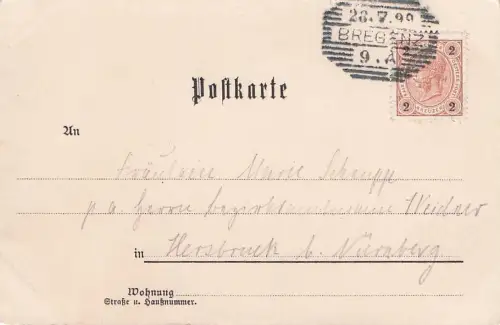 26.7.99
BREGENZ
9.A
2 2
2 2
KREUZER
Postkarte
An
Fräulein Marie Schaupp
p. a. Herrn Weidner
in Hersbruck b. Nürnberg
Wohnung
Straße u. Hausnummer.